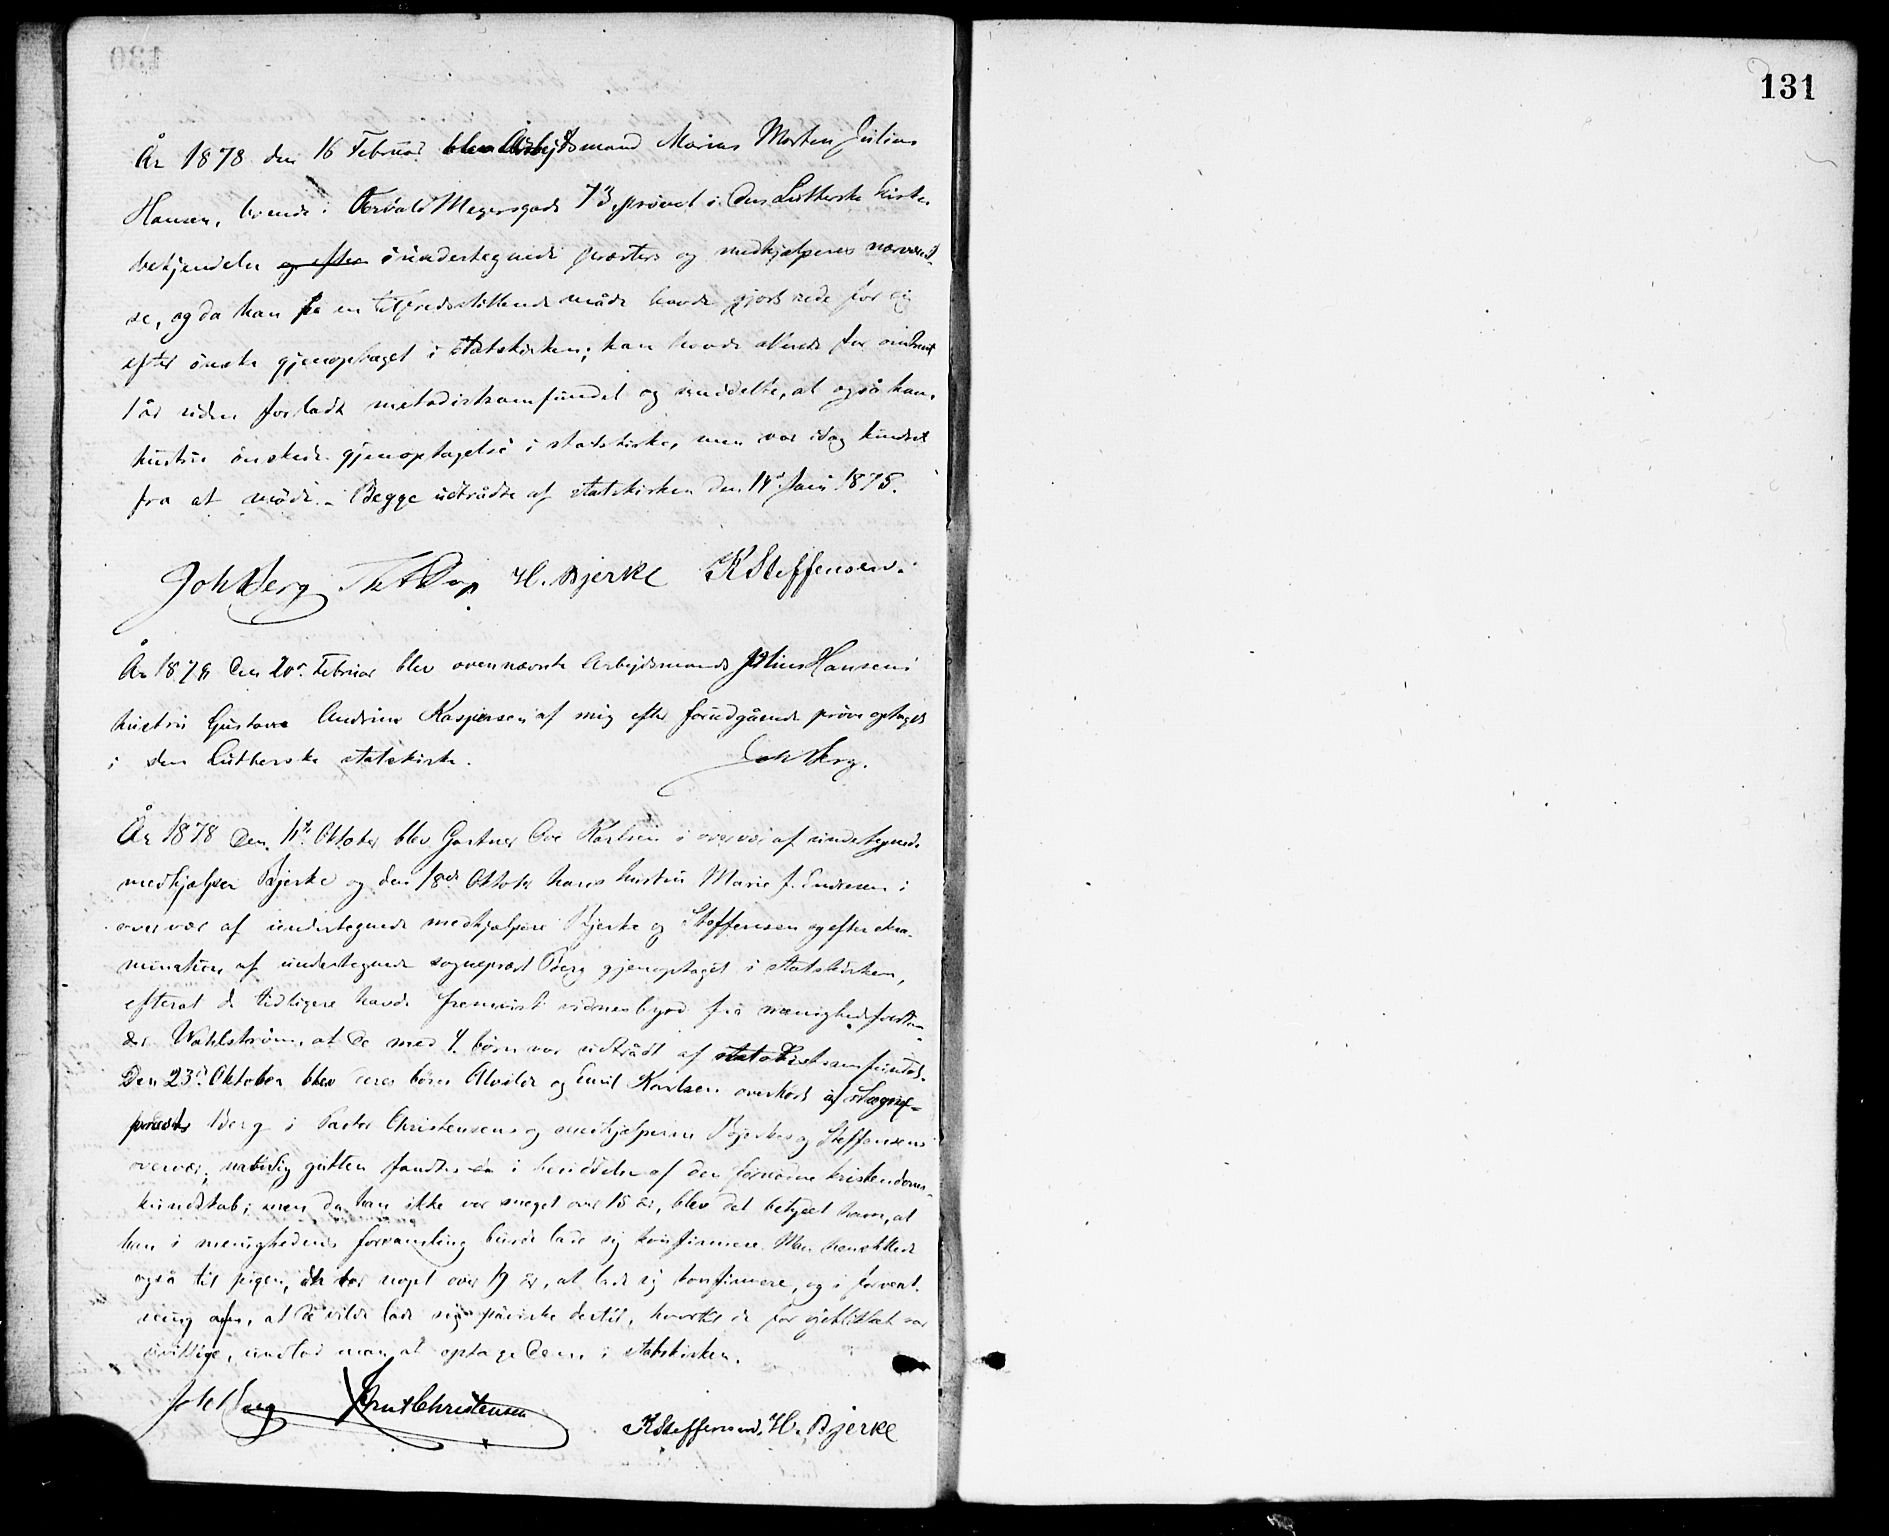 131
År 1878 den 16 Februar blev Arbejdsmand Marius Morten Julius
Hansen, boende i Torvald Meyersgade 73, prøvet i Den Lutherske kirkes
bekjendelse og efter i undertegnede præsters og medhjælperes nærværel-
se, og da han på en tilfredsstillende måde havde gjort rede for sig
efter ønske gjenoptaget i statskirken; han havde allerede for omtrent
1 år siden forladt metodistsamfundet og meddelte, at også hans
hustru ønskede gjenoptagelse i statskirken, men var idag hindret
fra at møde. – Begge udtrådte af statskirken den 14de Juni 1875.
Joh Berg H. Bjerke K Steffensen.
År 1878 den 20de Februar blev ovennævnte Arbejdsmands Julius Hansens
hustru Gustava Andrine Kaspersen af mig efter forudgående prøve optaget
i den Lutherske statskirke. Joh Berg.
År 1878 Den 11te Oktober blev Gartner Ove Karlsen i overvær af undertegnede
medhjælper Bjerke og den 18de Oktober hans hustru Marie J. Endresen i
overvær af undertegnede medhjælpere Bjerke og Steffensen og efter eksa-
mination af undertegnede sognepræst Berg gjenoptaget i statskirken,
efterat de tidligere havde fremvist vidnesbyrd fra menighedsforstan-
der Wahlstrøm, at de med 4 børn var udtrådt af samfundet.
Den 23de Oktober blev deres børn Alvilde og Emil Karlsen overhørt af Sogne-
præst Berg i Pastor Christensens og medhjælperne Bjerkes og Steffensens
overvær; navnlig gutten fandtes da i besiddelse af den fornødne kristendoms-
kundskab; men da han ikke var meget over 15 år, blev det betydet ham, at
han i menighedens forsamling burde lade sig konfirmere. Man henstillede
også til pigen, der var nøget over 19 år, at lade sig konfirmere, og i forvent-
ning om, at de vilde lade sig påvirke dertil, hvortil de for øieblikket var
uvillige, undlod man at optage dem i statskirken.
Joh Berg Knut Christensen
K Steffensen. H. Bjerke